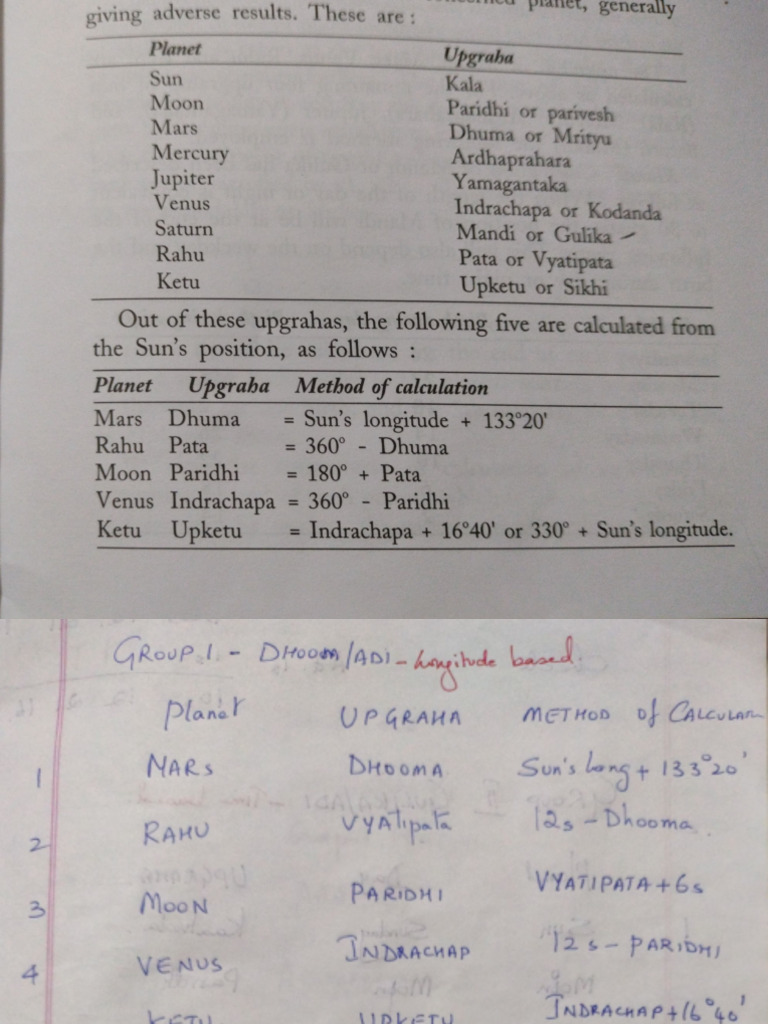 concerned planet, generally
giving adverse results. These are :
Planet Upgraha
Sun Kala
Moon Paridhi or parivesh
Mars Dhuma or Mrityu
Mercury Ardhaprahara
Jupiter Yamagantaka
Venus Indrachapa or Kodanda
Saturn Mandi or Gulika
Rahu Pata or Vyatipata
Ketu Upketu or Sikhi
Out of these upgrahas, the following five are calculated from
the Sun's position, as follows :
Planet Upgraha Method of calculation
Mars Dhuma = Sun's longitude + 133°20'
Rahu Pata = 360° - Dhuma
Moon Paridhi = 180° + Pata
Venus Indrachapa = 360° - Paridhi
Ketu Upketu = Indrachapa + 16°40' or 330° + Sun's longitude.
GROUP.1 - DHOOM/ADI - longitude based.
Planet UPGRAHA METHOD of CALCULATN
1 MARS DHOOMA Sun's Long + 133°20'
2 RAHU VYATIPATA 12s - Dhooma
3 MOON PARIDHI VYATIPATA + 6s
4 VENUS INDRACHAP 12s - PARIDHI
KETU UPKETU INDRACHAP + 16°40'